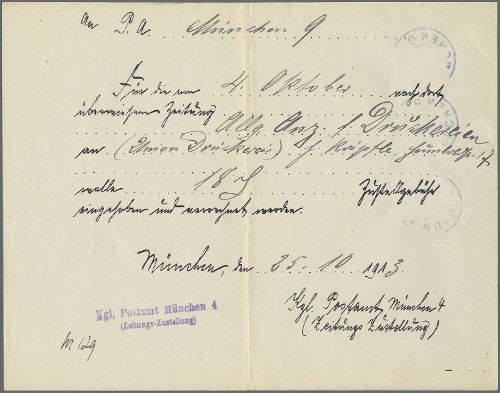 An P.A. München 9
Für die am 4. Oktober nach dort
überwiesene Zeitung Allg. Anz. f. Druckereien
an (Union Druckerei)
wolle 18 Zustellgebühr
eingehoben und verrechnet werden.
München, den 25.10.1913.
Kgl. Postamt München 4
(Zeitungs-Zustellung)
Kgl. Postamt München 4
(Zeitungs Zustellung)